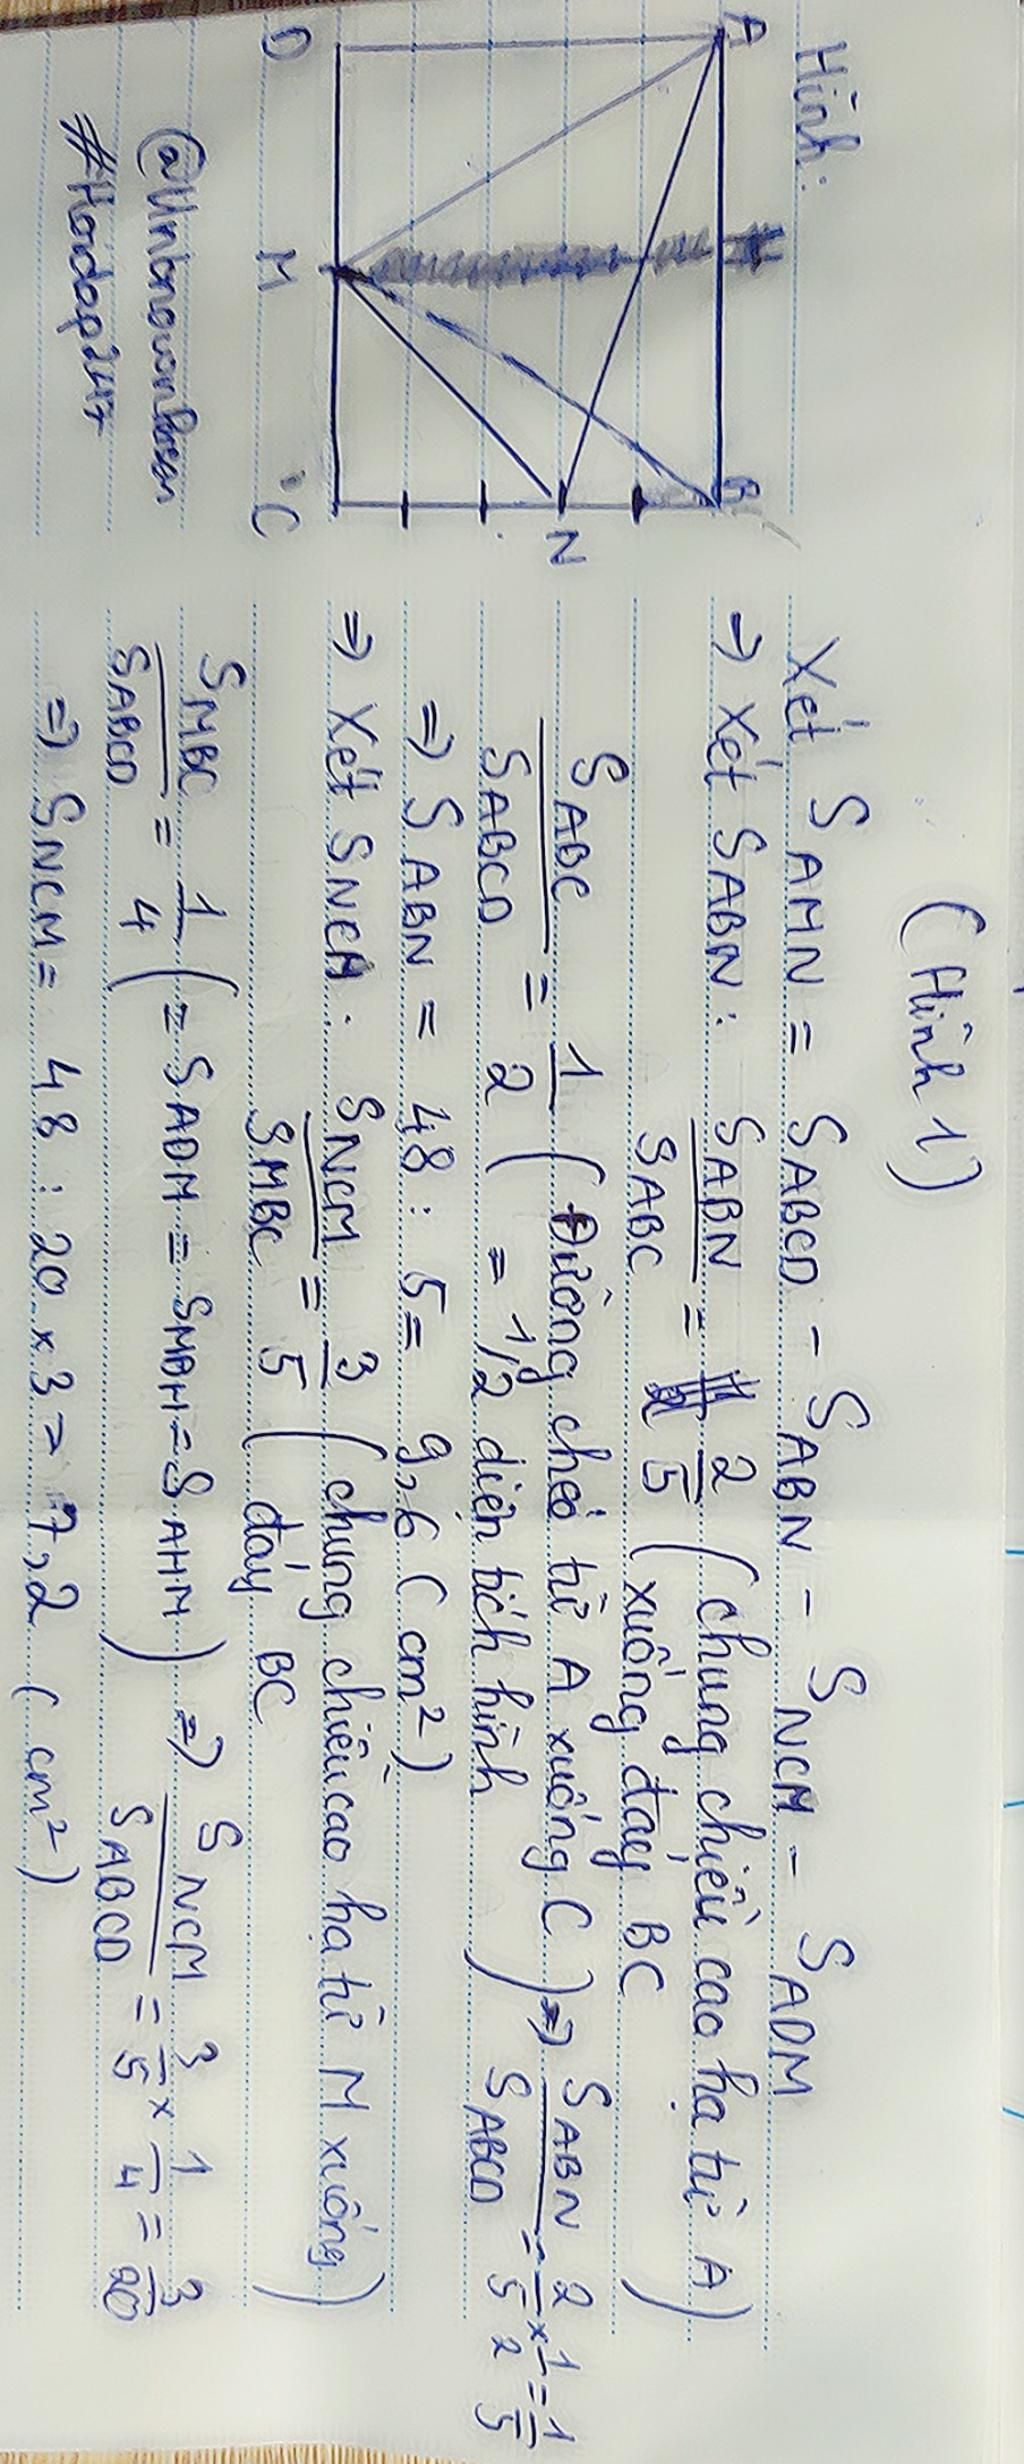 (Hình 1)
Hình:
A
B
D
M
C
N
@Unknownperson
#Hoidap247
Xét S AMN = SABCD - SABN - SNCM - SADM
=> Xét SABN: SABN/SABC = 2/5 (chung chiều cao hạ từ A
xuống đáy BC)
SABC/SABCD = 1/2 (Đường chéo từ A xuống C
= 1/2 diện tích hình) => SABN/SABCD = 2/5 x 1/2 = 1/5
=> S ABN = 48 : 5 = 9,6 (cm²)
=> Xét SNCM. SNCM/SMBC = 3/5 (chung chiều cao hạ từ M xuống
đáy BC)
SMBC/SABCD = 1/4 (= SADM = SMBH = SAHM) => SNCM/SABCD = 3/5 x 1/4 = 3/20
=> SNCM = 48 : 20 x 3 = 7,2 (cm²)